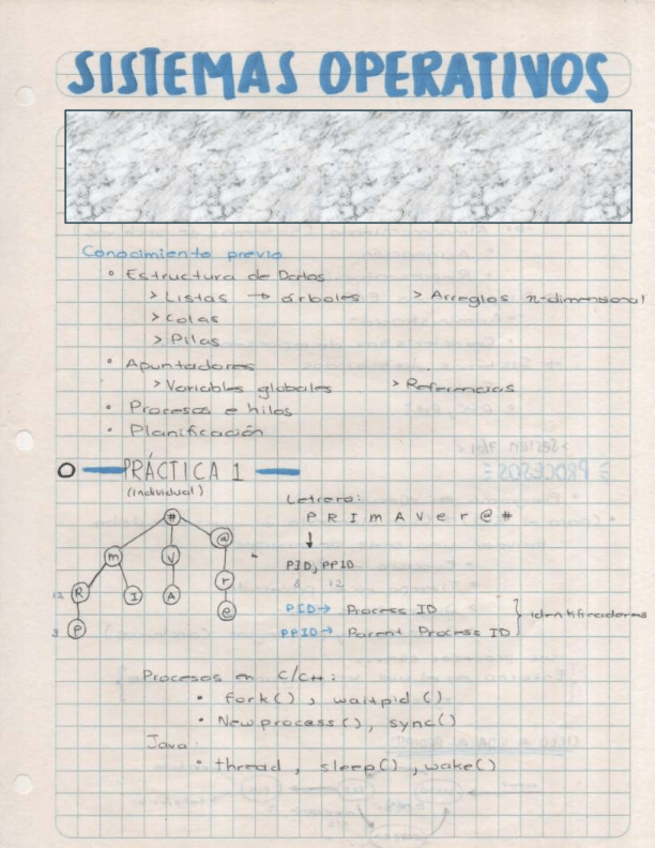 SISTEMAS OPERATIVOS
Conocimiento previo
° Estructura de Datos
> Listas → árboles > Arreglos n-dimensional
> Colas
> Pilas
° Apuntadores
> Variables globales > Referencias
• Procesos e hilos
• Planificación
PRÁCTICA 1
(individual)
Letrero:
P R I m A V e r @ #
↓
PID, PPID
12
PID → Process ID
PPID → Parent Process ID } identificadores
#
m V @
R I A r
12
P e
Procesos en C/C++:
• fork(), waitpid()
• New process(), sync()
Java:
• thread, sleep(), wake()